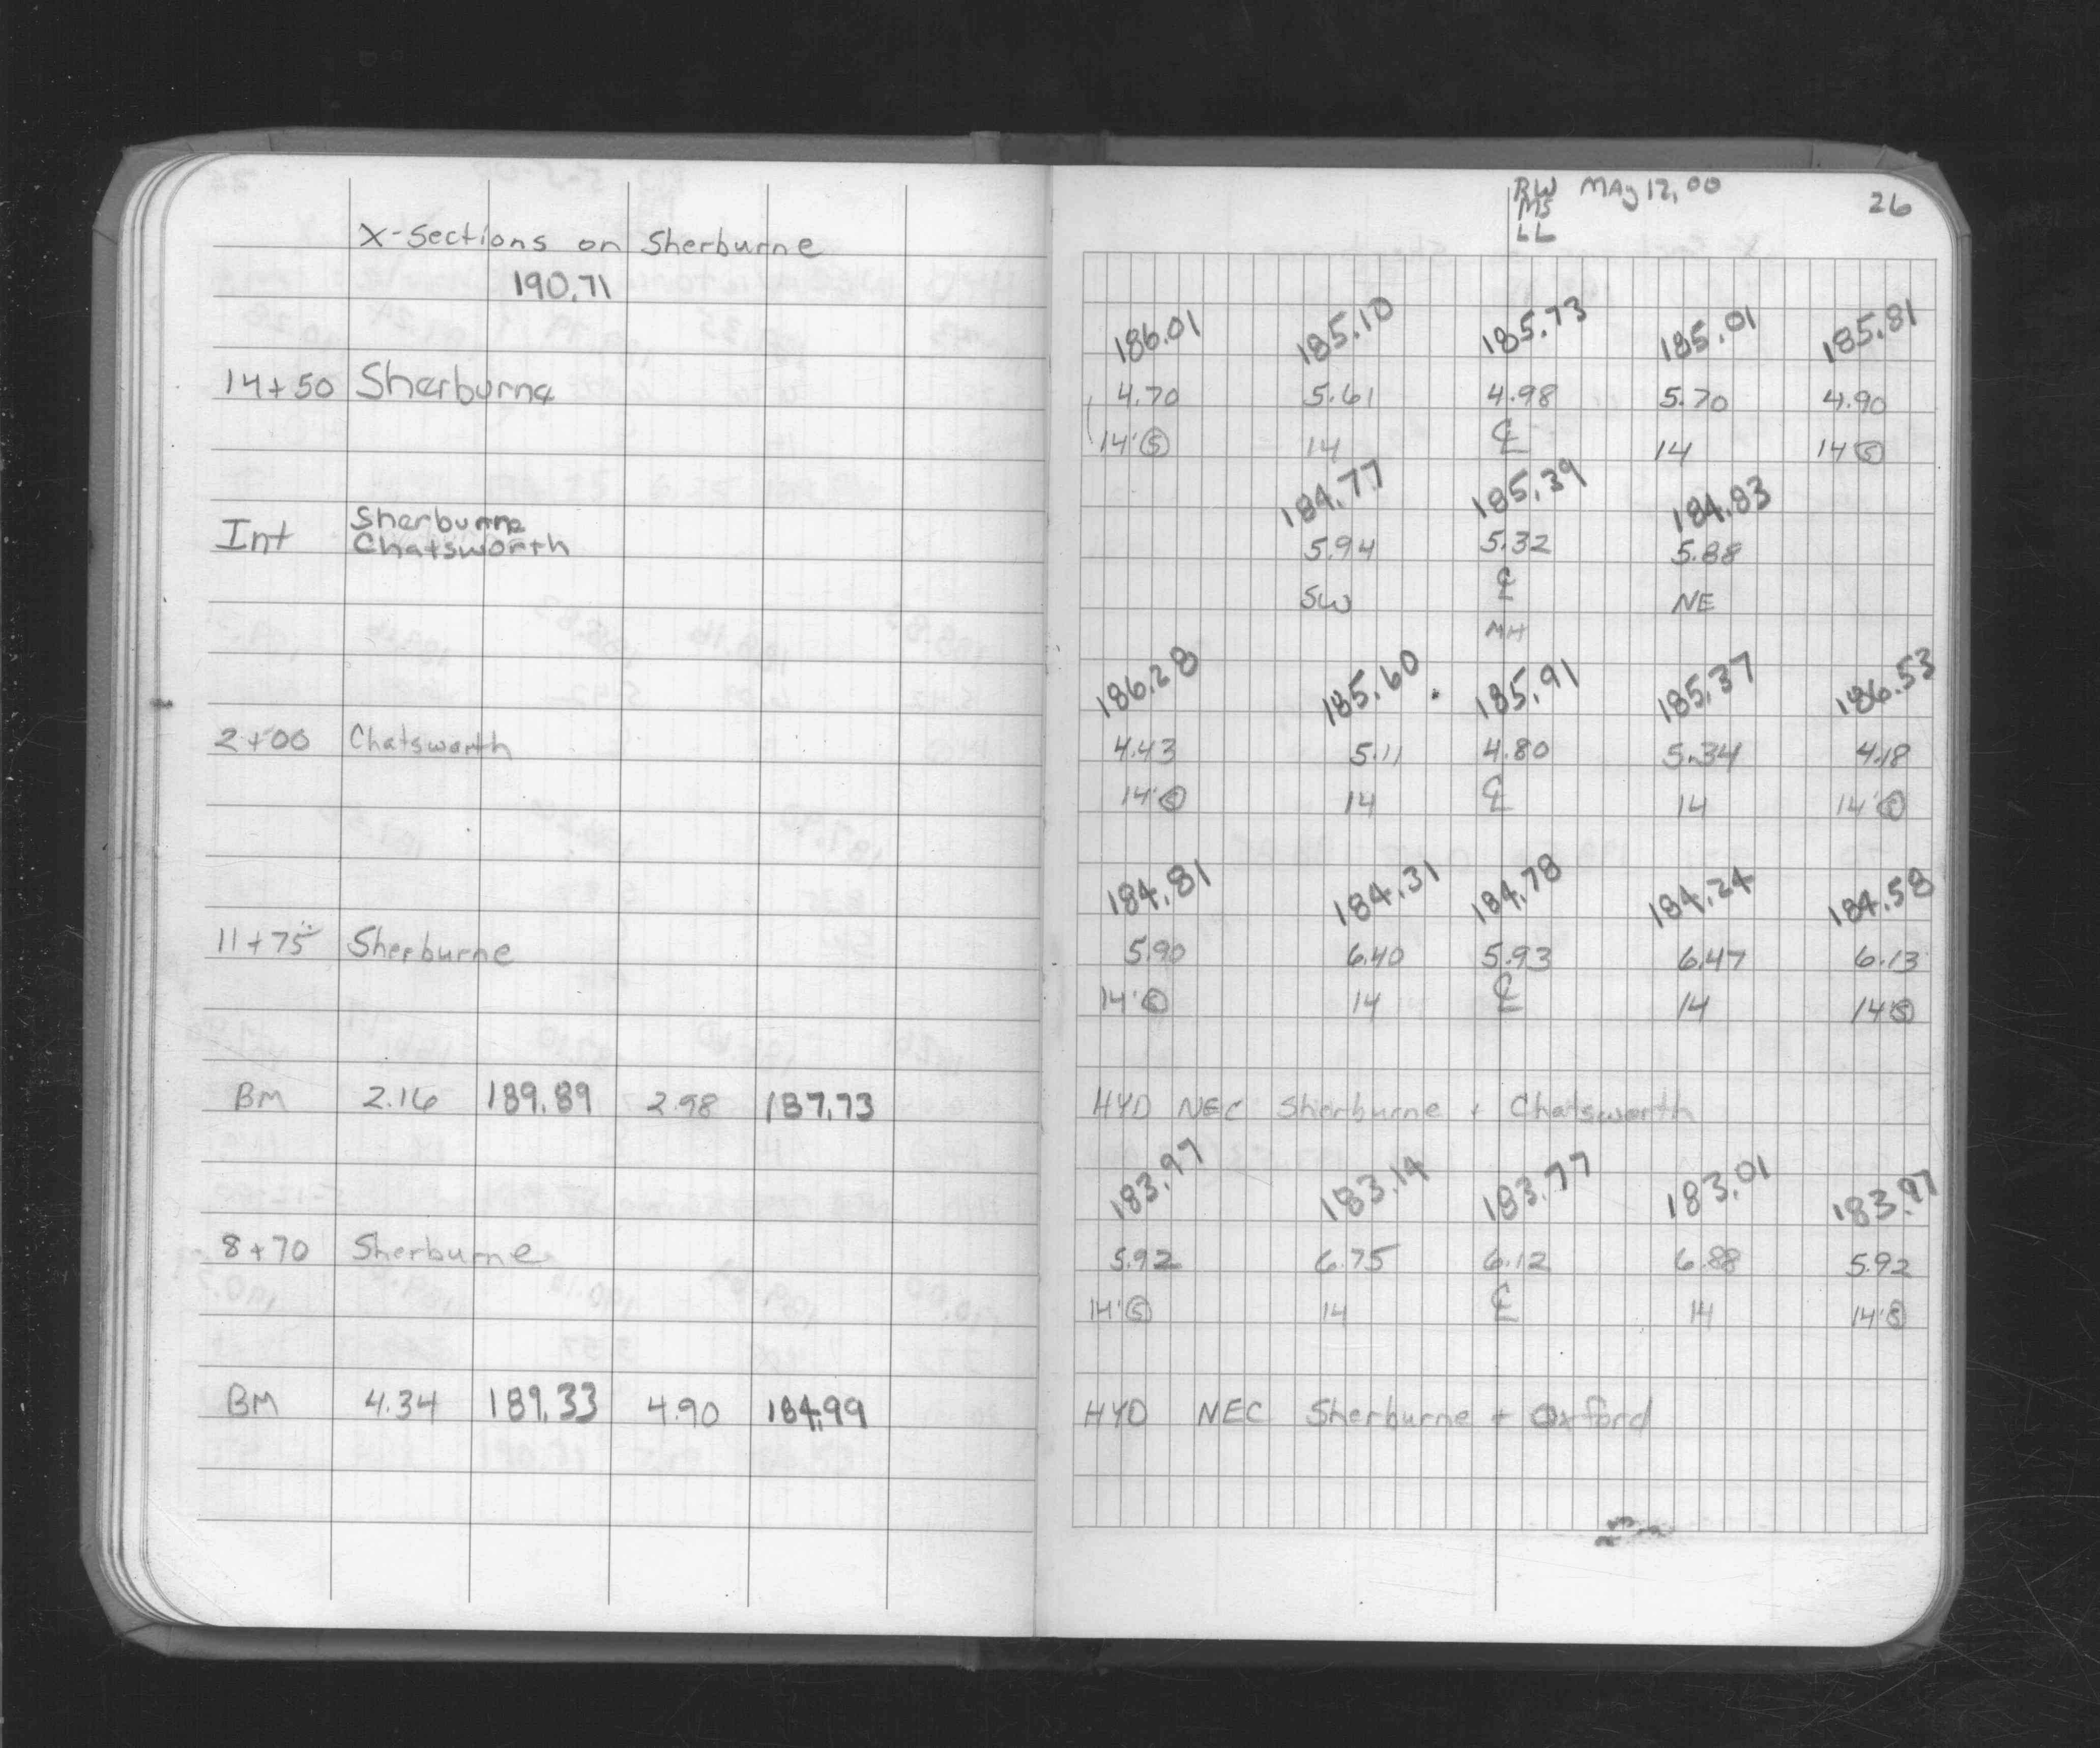 X-Sections on Sherburne
190.71
14+50 Sherburne
Int Sherburne
Chatsworth
2+00 Chatsworth
11+75 Sherburne
BM 2.16 189.89 2.98 187.73
8+70 Sherburne
BM 4.34 189.33 4.90 184.99
RW May 12, 00 26
MS
LL
186.01 185.10 185.73 185.01 185.81
4.70 5.61 4.98 5.70 4.90
14' Ⓢ 14 ℄ 14 14 Ⓢ
184.77 185.39 184.83
5.94 5.32 5.88
SW ℄ NE
MH
186.28 185.60 185.91 185.37 186.53
4.43 5.11 4.80 5.34 4.18
14' Ⓢ 14 ℄ 14 14' Ⓢ
184.81 184.31 184.78 184.24 184.58
5.90 6.40 5.93 6.47 6.13
14' Ⓢ 14 ℄ 14 14 Ⓢ
HYD NEC Sherburne + Chatsworth
183.97 183.14 183.77 183.01 183.97
5.92 6.75 6.12 6.88 5.92
14' Ⓢ 14 ℄ 14 14' Ⓢ
HYD NEC Sherburne + Oxford